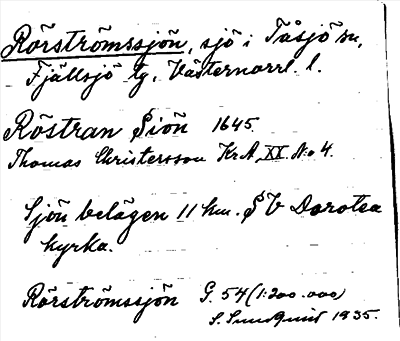 Rörströmssjön, sjö i Tåsjö sn,
Fjällsjö tg, Västernorrl. l.
Röstran Siön 1645.
Thomas Christersson Kr.A. XX N:o 4.
Sjön belägen 11 km. SV Dorotea
kyrka.
Rörströmssjön G. 54 (1:200.000)
S. Sundquist 1935.